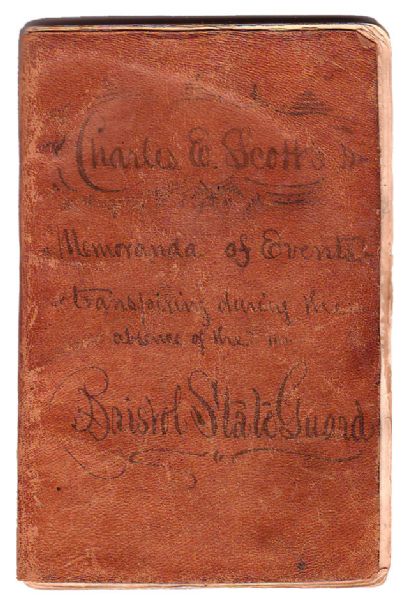 Charles E. Scott's
Memoranda of Events
transpiring during the
absence of the
Bristol State Guard